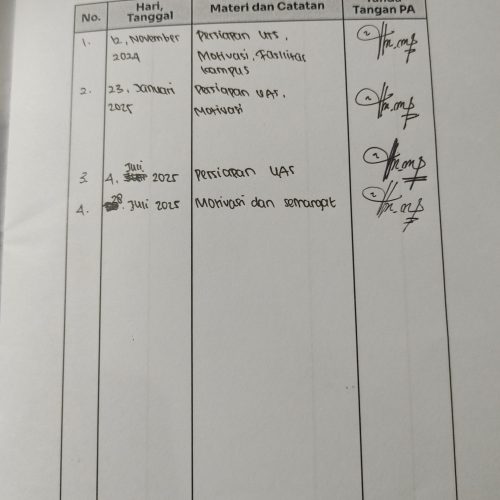 No.
Hari,
Tanggal
Materi dan Catatan
Tangan PA
1.
12, November
2024
Persiapan UTS,
Motivasi, Fasilitas
kampus
2.
23, Januari
2025
Persiapan UAS,
Motivasi
3.
4, Juli 2025
Persiapan UAS
4.
28. Juli 2025
Motivasi dan semangat